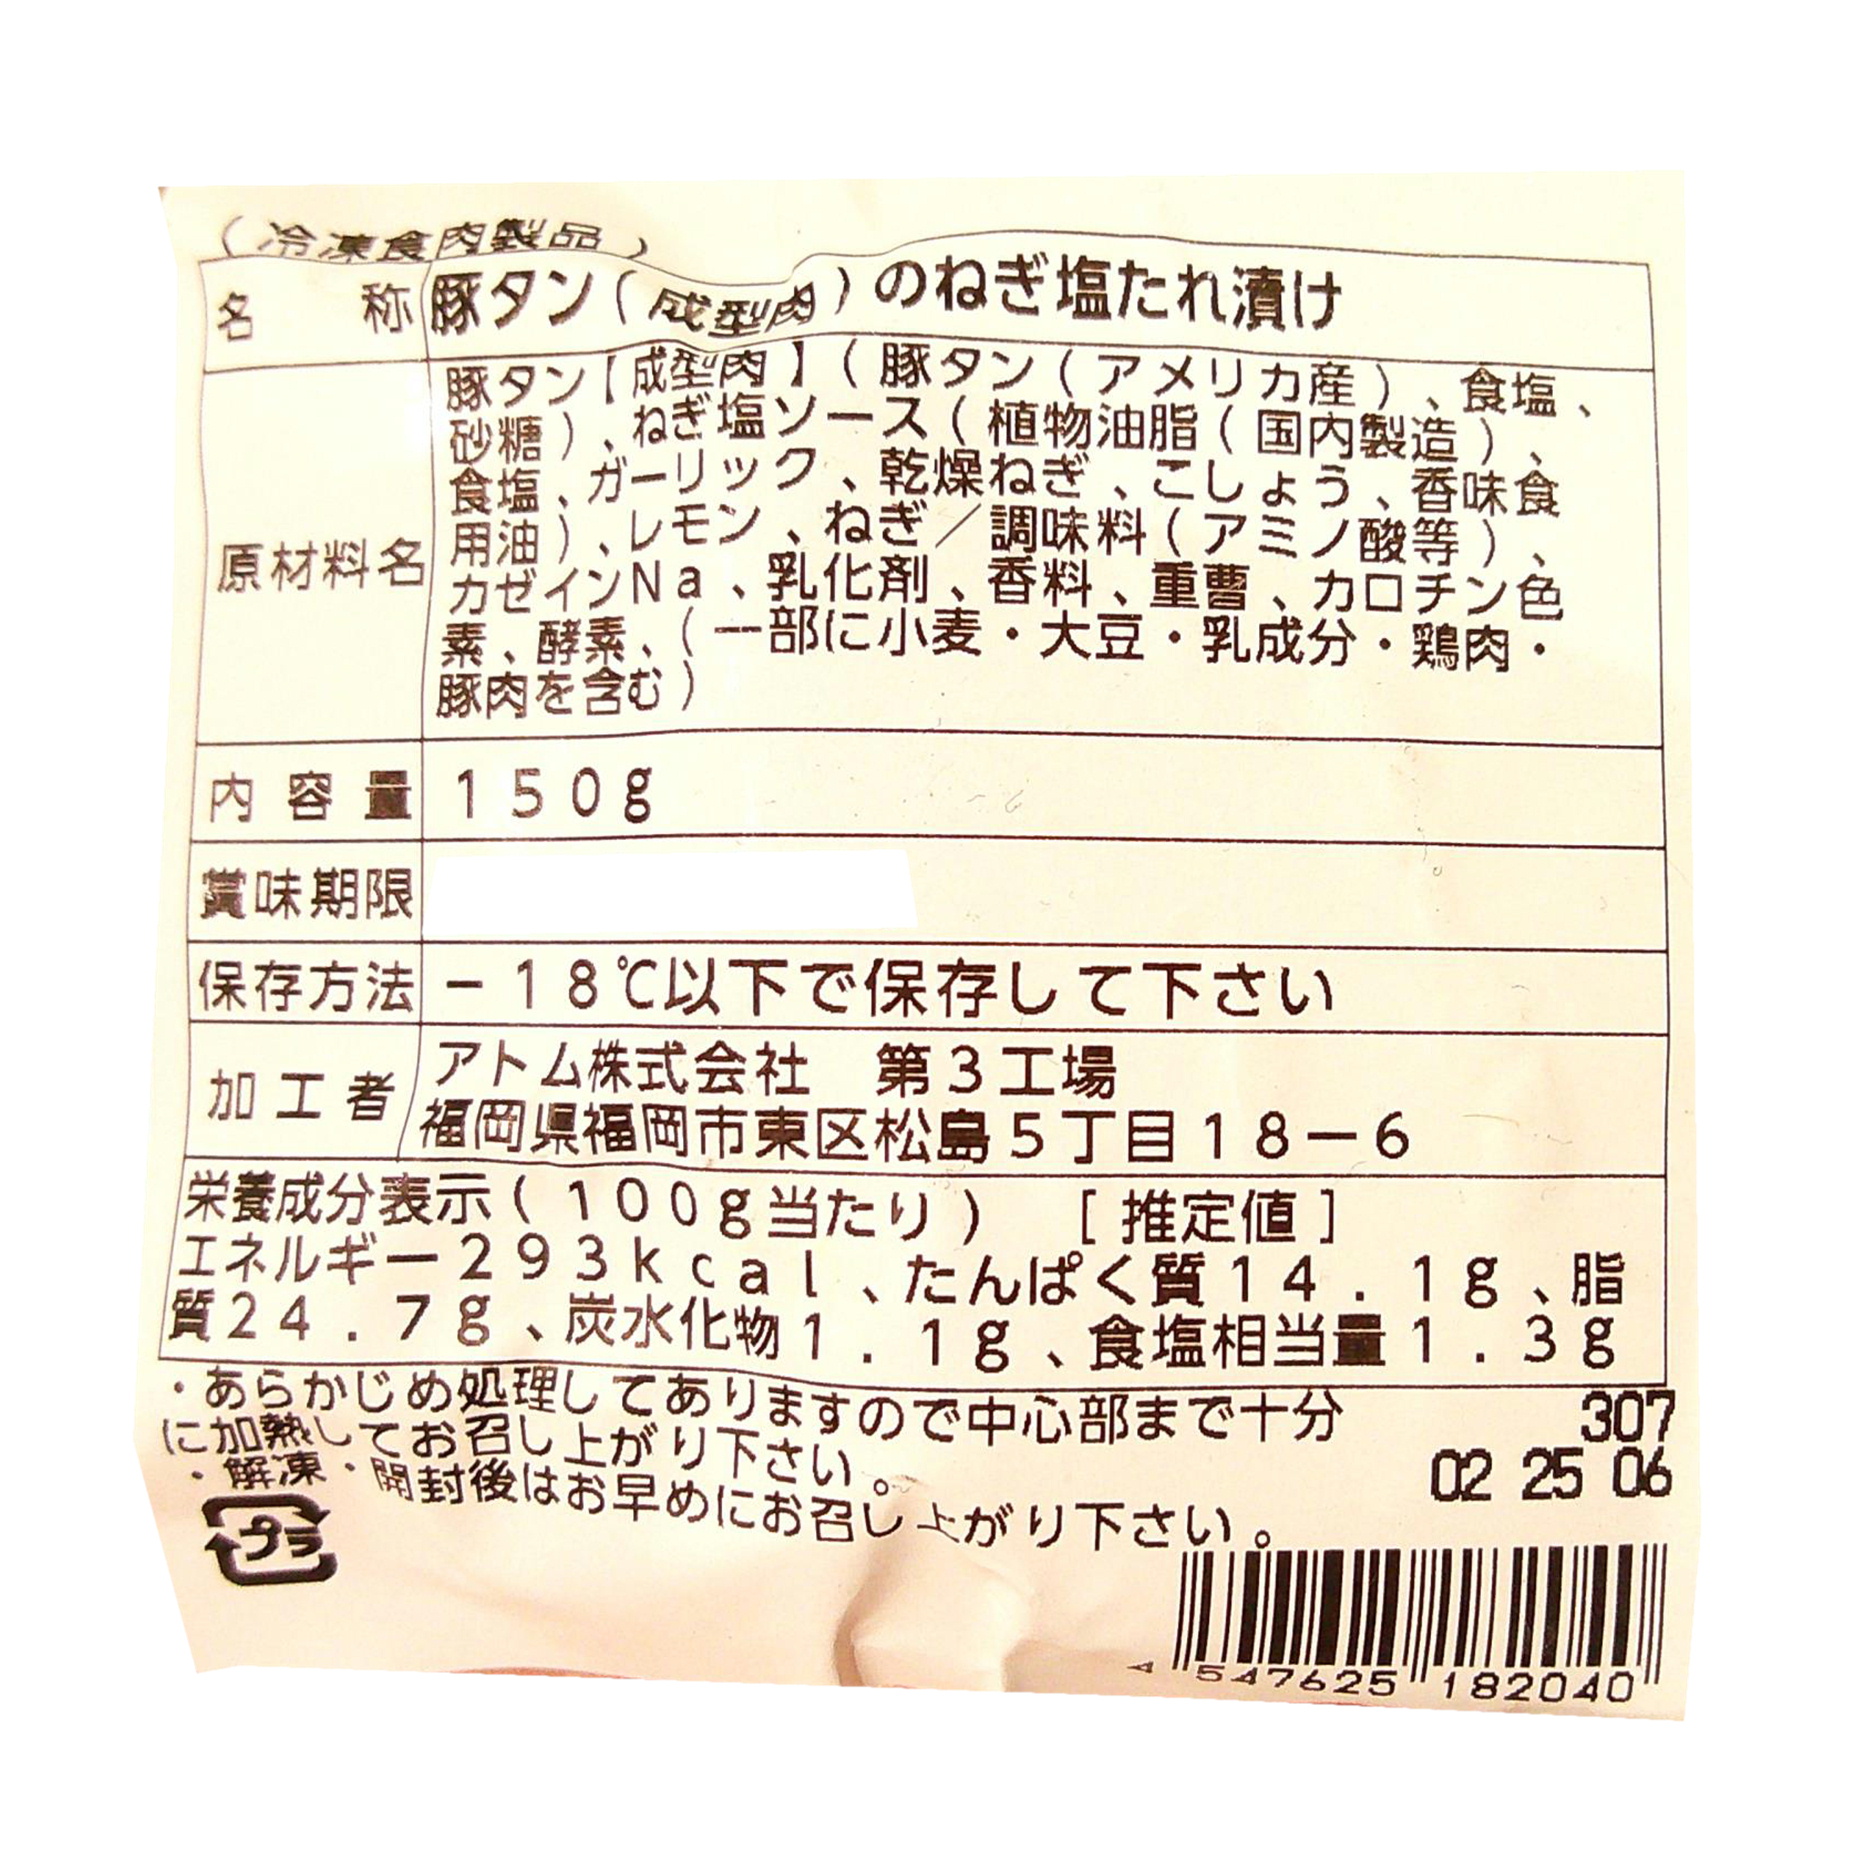 (冷凍食肉製品)
名　称 豚タン(成型肉)のねぎ塩たれ漬け
原材料名
豚タン【成型肉】(豚タン(アメリカ産)、食塩、
砂糖)、ねぎ塩ソース(植物油脂(国内製造)、
食塩、ガーリック、乾燥ねぎ、こしょう、香味食
用油)、レモン、ねぎ／調味料(アミノ酸等)、
カゼインNa、乳化剤、香料、重曹、カロチン色
素、酵素、(一部に小麦・大豆・乳成分・鶏肉・
豚肉を含む)
内容量 150g
賞味期限
保存方法 −18℃以下で保存して下さい
加工者
アトム株式会社　第3工場
福岡県福岡市東区松島5丁目18−6
栄養成分表示(100g当たり)　[推定値]
エネルギー293kcal、たんぱく質14.1g、脂
質24.7g、炭水化物1.1g、食塩相当量1.3g
・あらかじめ処理してありますので中心部まで十分
に加熱してお召し上がり下さい。
・解凍・開封後はお早めにお召し上がり下さい。
307
02 25 06
プラ
4 547625 182040